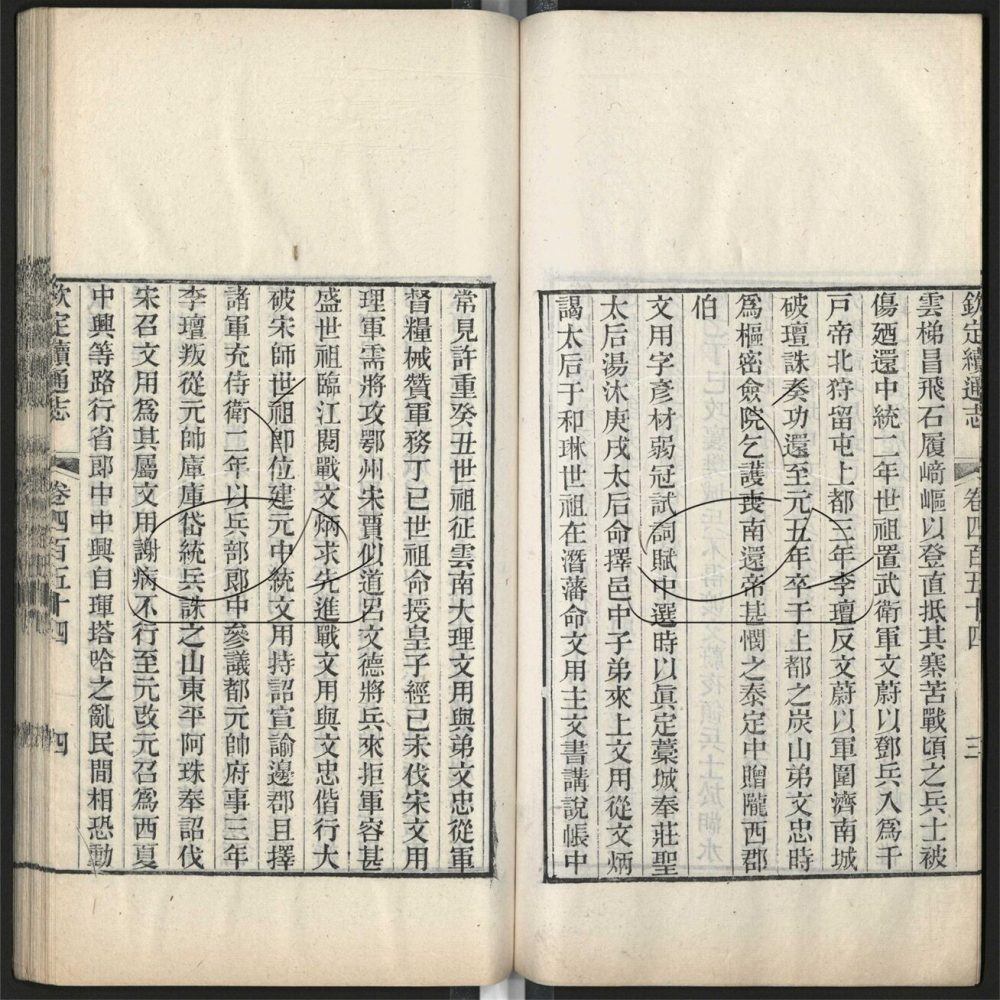 欽定續通志 卷四百五十四 三
雲梯昌飛石履﨑嶇以登直抵其寨苦戰頃之兵士被
傷廼還中統二年世祖置武衛軍文蔚以鄧兵入爲千
戸帝北狩留屯上都三年李璮反文蔚以軍圍濟南城
破璮誅奏功還至元五年卒于上都之炭山弟文忠時
爲樞密僉院乞護喪南還帝甚憫之泰定中贈隴西郡
伯
文用字彥材弱冠試詞賦中選時以眞定藁城奉莊聖
太后湯沐庚戌太后命擇邑中子弟來上文用從文炳
謁太后于和琳世祖在潛藩命文用主文書講說帳中
常見許重癸丑世祖征雲南大理文用與弟文忠從軍
督糧械贊軍務丁巳世祖命授皇子經己未伐宋文用
理軍需將攻鄂州宋賈似道呂文德將兵來拒軍容甚
盛世祖臨江閱戰文炳求先進戰文用與文忠偕行大
破宋師世祖卽位建元中統文用持詔宣諭邊郡且擇
諸軍充侍衛二年以兵部郎中參議都元帥府事三年
李璮叛從元帥庫庫岱統兵誅之山東平阿珠奉詔伐
宋召文用爲其屬文用謝病不行至元改元召爲西夏
中興等路行省郎中中興自琿塔哈之亂民間相恐動
欽定續通志 卷四百五十四 四